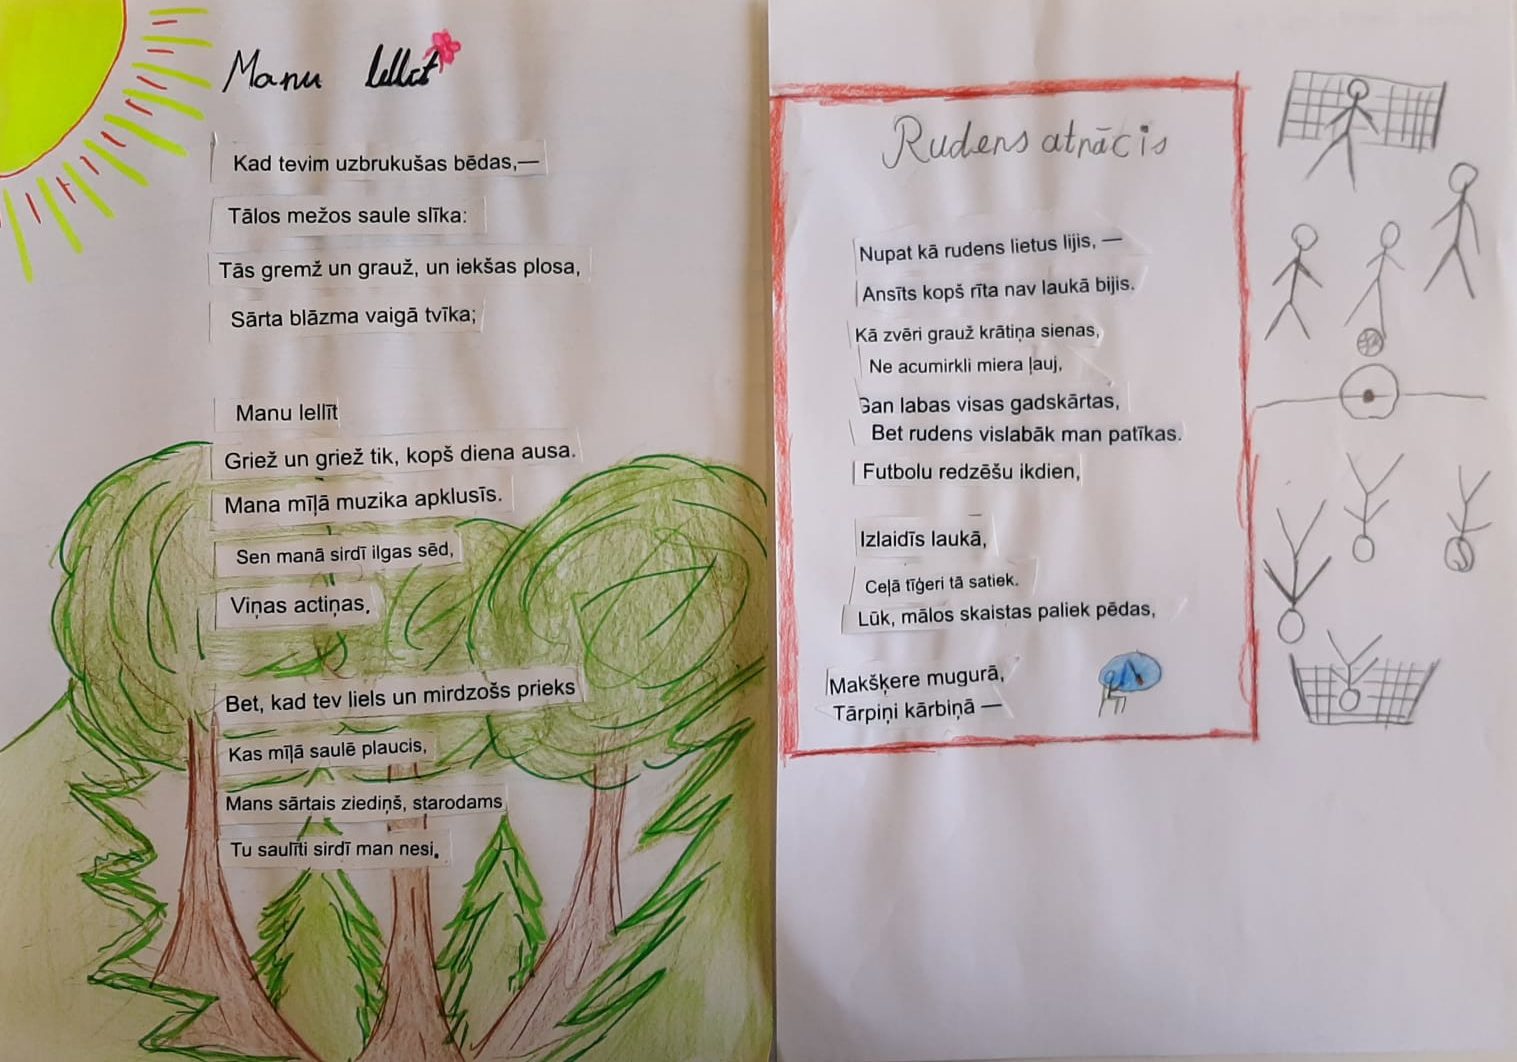 Manu lellīt
Kad tevim uzbrukušas bēdas,—
Tālos mežos saule slīka:
Tās gremž un grauž, un iekšas plosa,
Sārta blāzma vaigā tvīka;
Manu lellīt
Griež un griež tik, kopš diena ausa.
Mana mīļā muzika apklusīs.
Sen manā sirdī ilgas sēd,
Viņas actiņas.
Bet, kad tev liels un mirdzošs prieks
Kas mīļā saulē plaucis,
Mans sārtais ziediņš, starodams
Tu saulīti sirdī man nesi.
Rudens atnācis
Nupat kā rudens lietus lijis, —
Ansīts kopš rīta nav laukā bijis.
Kā zvēri grauž krātiņa sienas,
Ne acumirkli miera ļauj,
Gan labas visas gadskārtas,
Bet rudens vislabāk man patīkas.
Futbolu redzēšu ikdien,
Izlaidīs laukā,
Ceļā tīģeri tā satiek.
Lūk, mālos skaistas paliek pēdas,
Makšķere mugurā,
Tārpiņi kārbiņā —